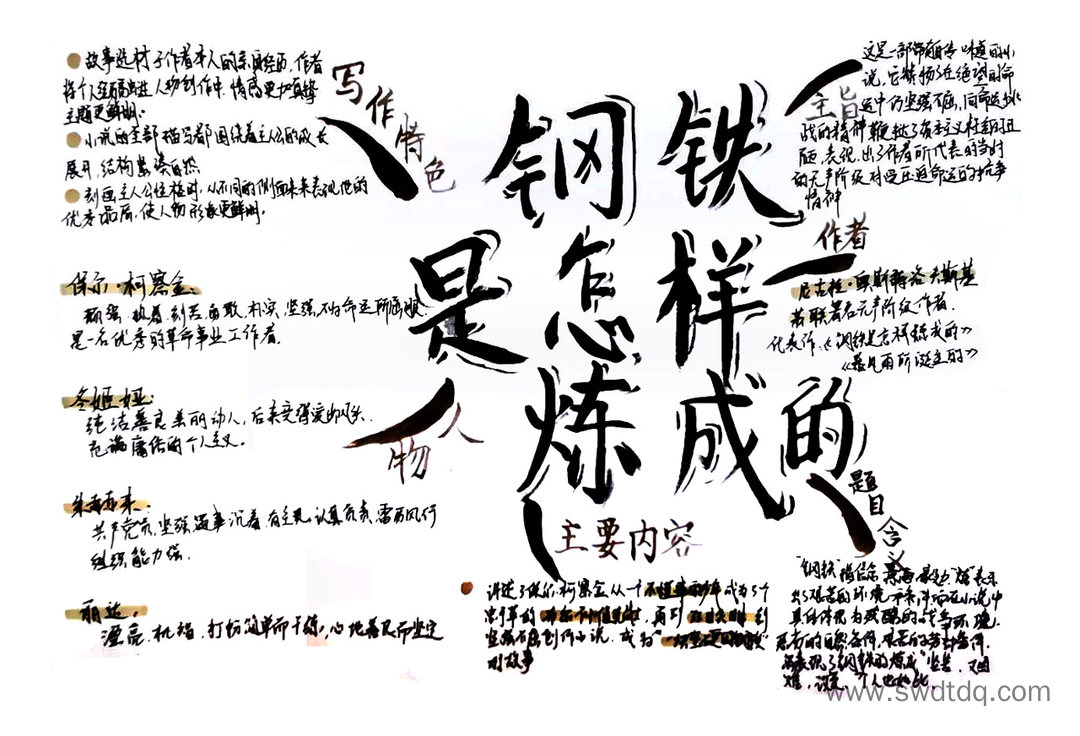 钢铁
是怎样
炼成的
写作特色
故事选材于作者本人的亲身经历,作者
将个人经历融进人物创作中,情感更加真挚
主题更鲜明。
小说的全部描写都围绕着主人公的成长
展开,结构紧凑自然
刻画主人公性格时,从不同的侧面来表现他的
优秀品质,使人物形象更鲜明。
主旨
这是一部带自传味道的小
说,它
运中仍坚强不屈,同命运挑
战的精神鞭挞了资本主义社会的丑
陋,表现出了作者所代表的当时
的无产阶级对受压迫命运的抗争
精神
作者
尼古拉·奥斯特洛夫斯基
苏联著名无产阶级作者.
代表作:《钢铁是怎样炼成的》
《暴风雨所诞生的》
人物
保尔·柯察金:
顽强 执着 刻苦 勇敢,朴实,坚强,不为命运所屈服
是一名优秀的革命事业工作者.
冬妮娅:
纯洁善良 美丽动人,后来变得爱出风头.
充满庸俗的个人主义.
朱赫来:
共产党员,坚强 遇事沉着.有主见.认真负责,雷厉风行
组织能力强.
丽达:
漂亮.机智.打扮简单而干练,心地善良而坚定
主要内容
讲述了保尔·柯察金从一个不懂事的少年成为一个
忠诚的 再到 到
坚强不屈创作小说,成为
的故事
题目含义
“钢铁”指
出了艰苦的环境 在小说中
具体体现为残酷的战争环境.
恶劣的自然条件,艰苦的劳动条件.
表现了钢铁的炼成 艰苦,又困
难, 个人也如此.
www.swdtdq.com